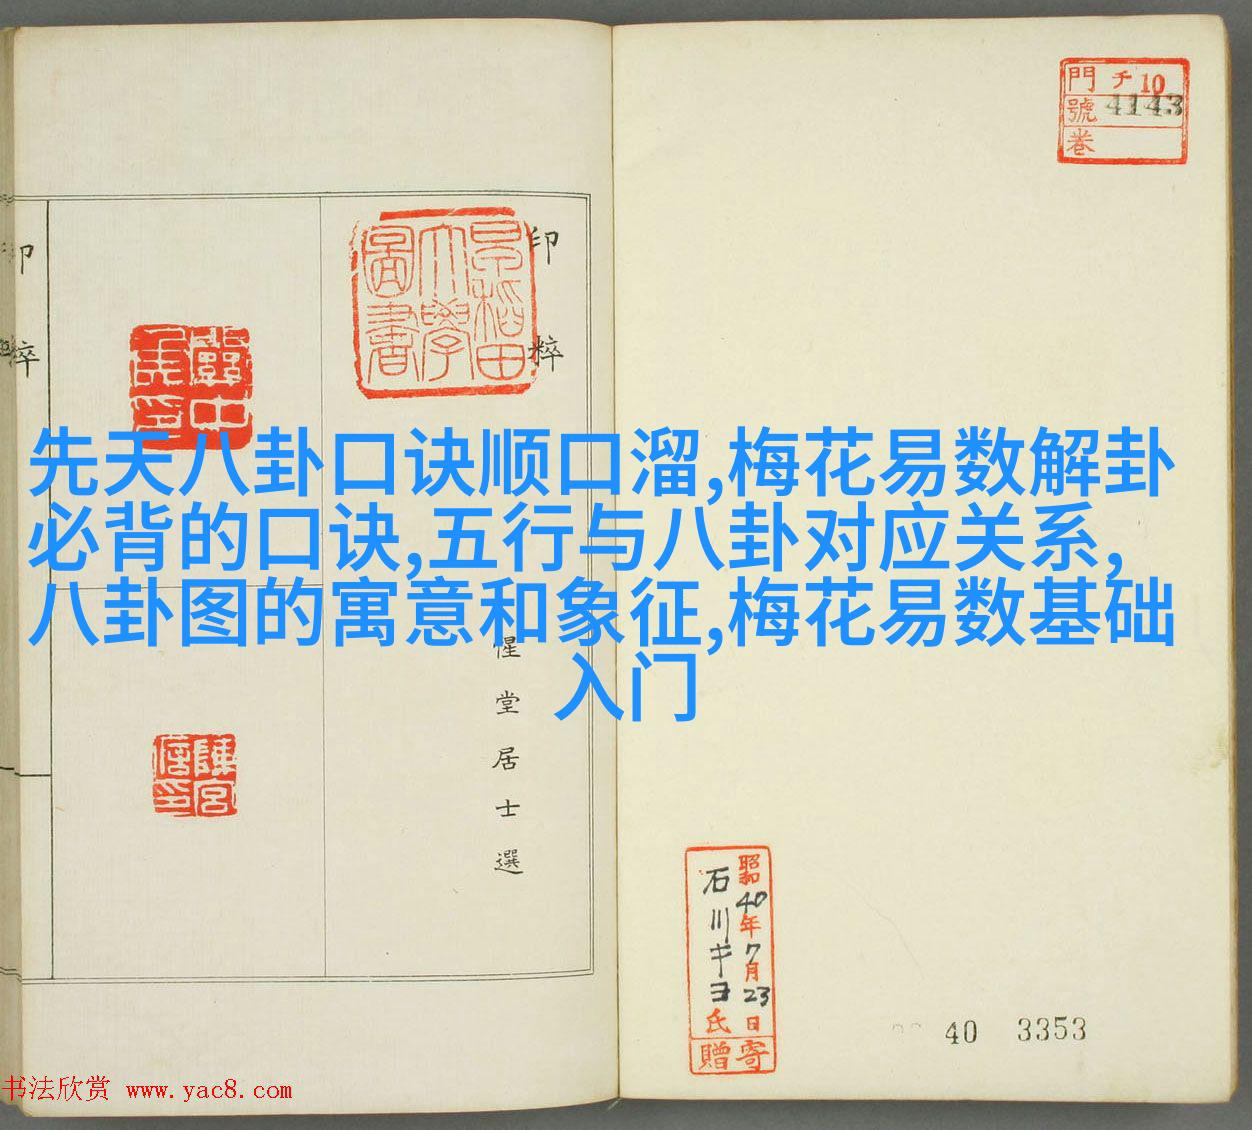 先天八卦口诀顺口溜,梅花易数解卦
必背的口诀,五行与八卦对应关系,
八卦图的寓意和象征,梅花易数基础
入门
門 チ10
號 4143
卷
印粹
印粹
早稻田
大學
圖書
惺堂居士選
冀中
陳宮
信印
昭和40年7月23日
石川キヨ氏
寄贈
40 3353
书法欣赏 www.yac8.com